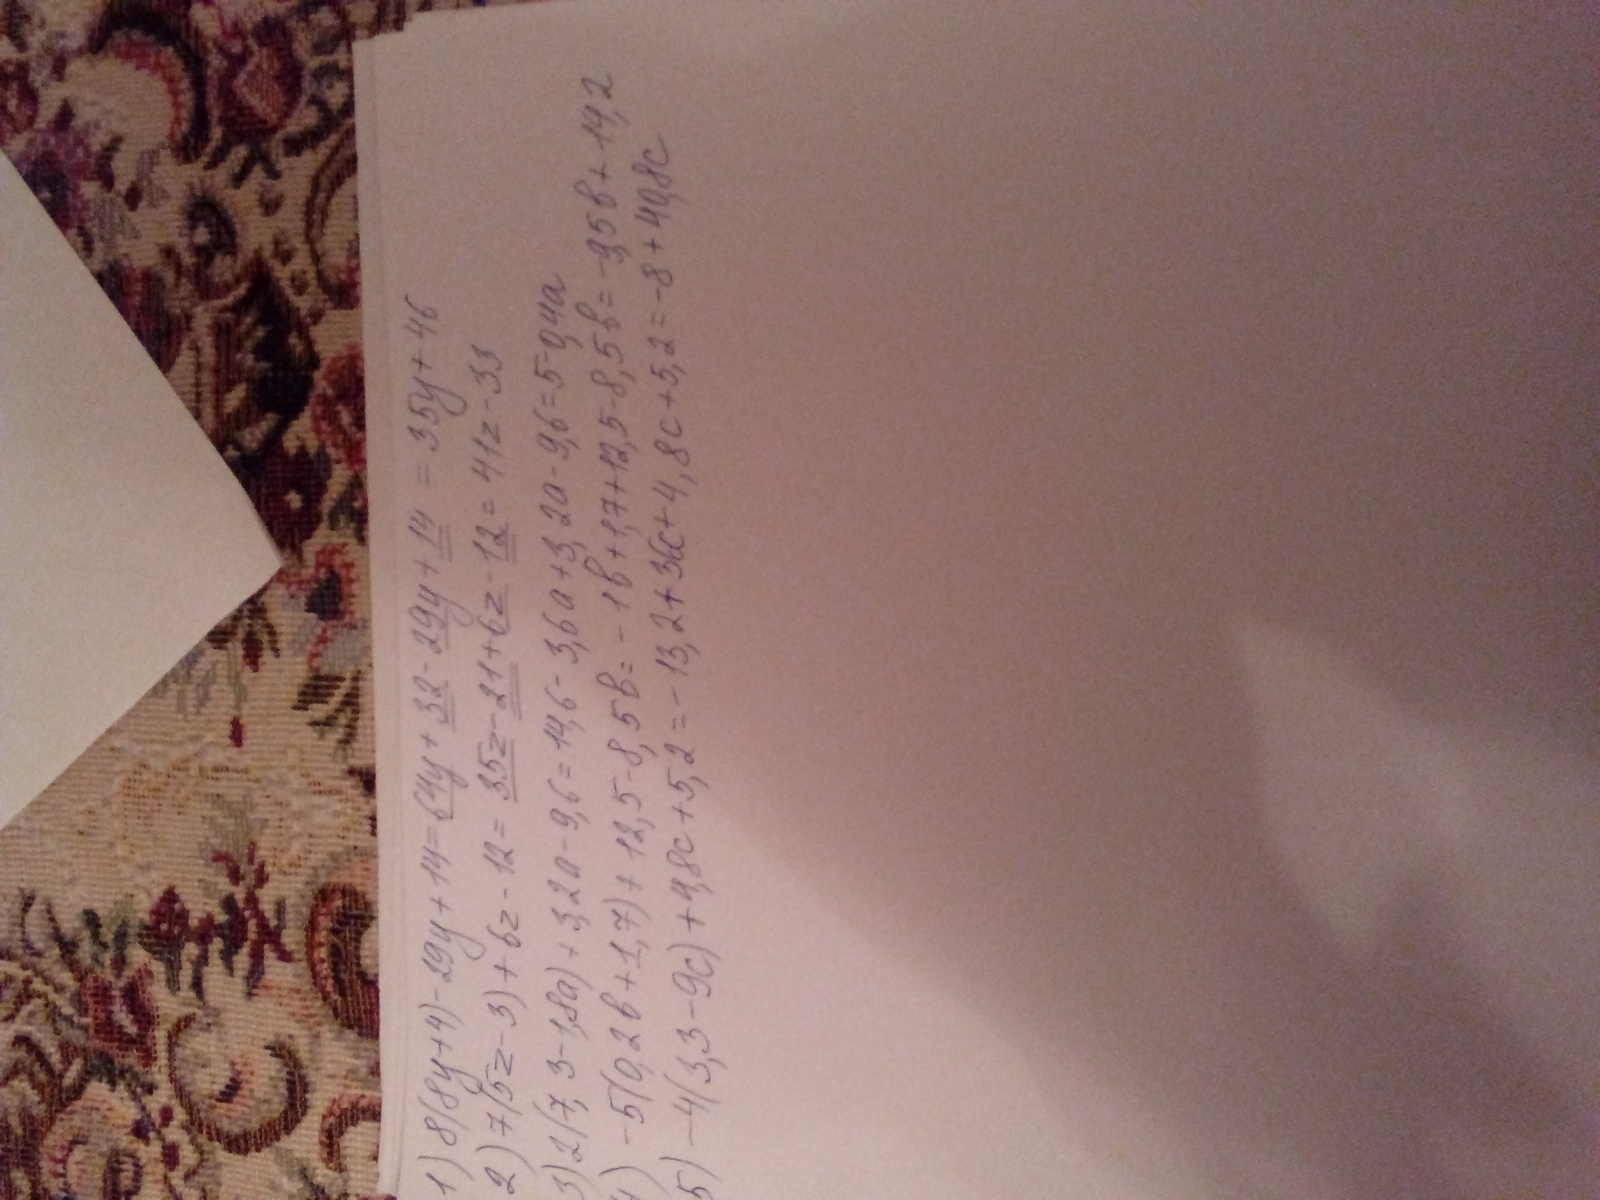 1) 8(8y+4)-29y+14=64y+32-29y+14=35y+46
2) 7(5z-3)+6z-12=35z-21+6z-12=41z-33
3) 2(7,3-1,8a)+3,2a-9,6=14,6-3,6a+3,2a-9,6=5-0,4a
4) -5(0,2b+1,7)+12,5-8,5b=-1b+1,7+12,5-8,5b=-9,5b+14,2
5) -4(3,3-9c)+4,8c+5,2=-13,2+36c+4,8c+5,2=-8+40,8c